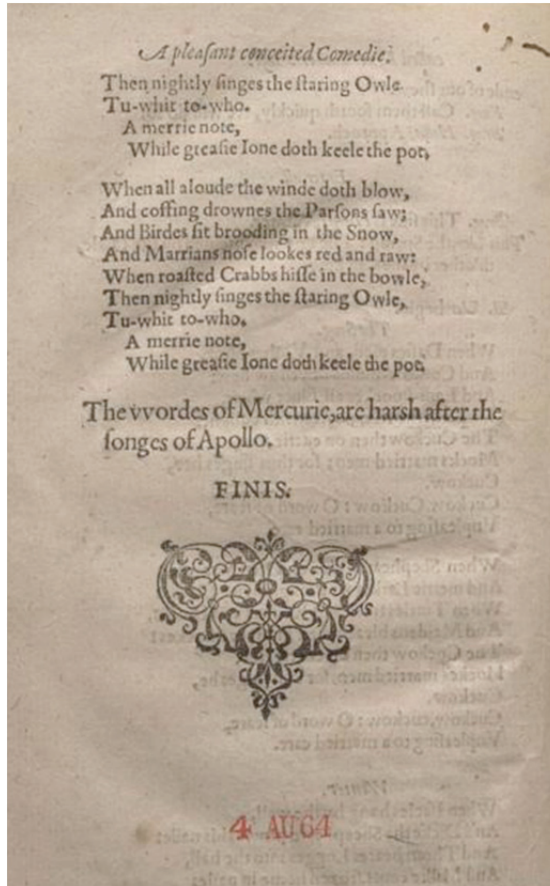 A pleasant conceited Comedie:
Then nightly singes the staring Owle
Tu-whit to-who.
A merrie note,
While greasie Ione doth keele the pot,
When all aloude the winde doth blow,
And coffing drownes the Parsons saw;
And Birdes sit brooding in the Snow,
And Marrians nose lookes red and raw:
When roasted Crabbs hisse in the bowle,
Then nightly singes the staring Owle,
Tu-whit to-who.
A merrie note,
While greasie Ione doth keele the pot,
The vvordes of Mercurie, are harsh after the
songes of Apollo.
FINIS.
4 AU64